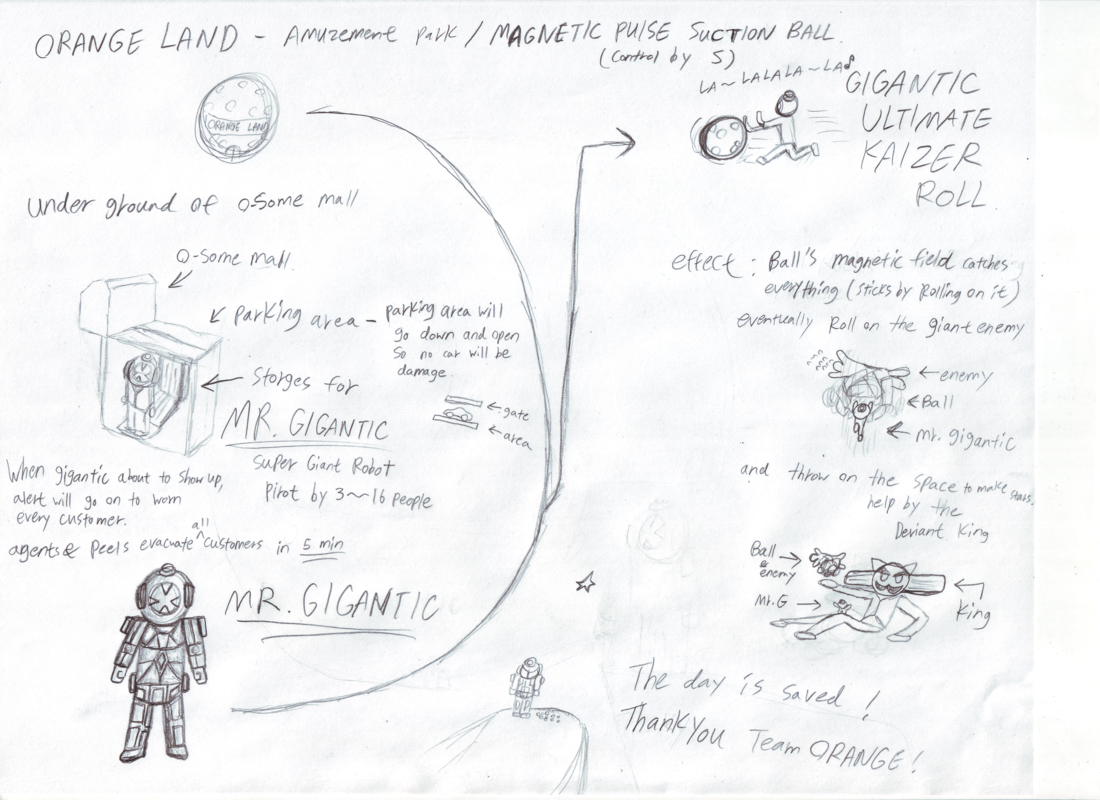 ORANGE LAND - Amuzement park / MAGNETIC PULSE SUCTION BALL
(control by S)
ORANGE LAND
LA~LALALA~LA♪
GIGANTIC
ULTIMATE
KAIZER
ROLL
under ground of o-some mall
O-some mall
parking area - parking area will
go down and open
so no car will be
damage
Storges for
MR. GIGANTIC
super Giant Robot
Pirot by 3~16 people
gate
area
When gigantic about to show up,
alert will go on to worn
every customer.
agents & Peels evacuate all customers in 5 min
MR. GIGANTIC
effect: Ball's magnetic field catches
everything (sticks by Rolling on it)
eventually Roll on the giant enemy
enemy
Ball
mr. gigantic
and throw on the space to make stars.
help by the
Deviant King
Ball
&
enemy
Mr.G
King
The day is saved!
Thankyou Team ORANGE!